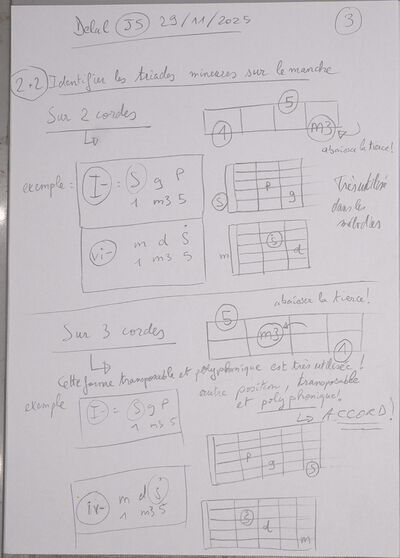 Delal J5 29/11/2025 3
2+2 Identifier les triades mineures sur le manche
Sur 2 cordes
5
1 m3
abaisser la tierce!
exemple = I- = S g P
1 m3 5
P
g
S
Très utilisé
dans les
mélodies
vi- m d Ṡ
1 m3 5
ṡ
m d
abaisser la tierce!
Sur 3 cordes
5
m3
1
Cette forme transposable et polyphonique est très utilisée!
autre position, transposable
et polyphonique!
ACCORD!
exemple I- = S g P
1 m3 5
P
g
S
iv- m d ṡ
1 m3 5
d
m